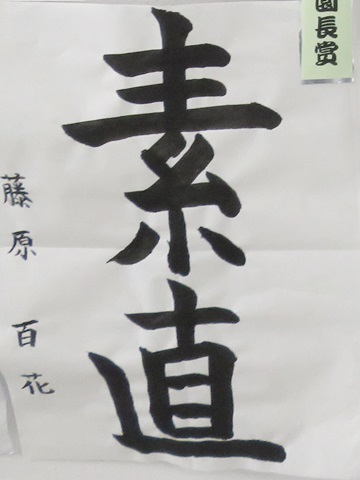 園長賞
素直
藤原 百花